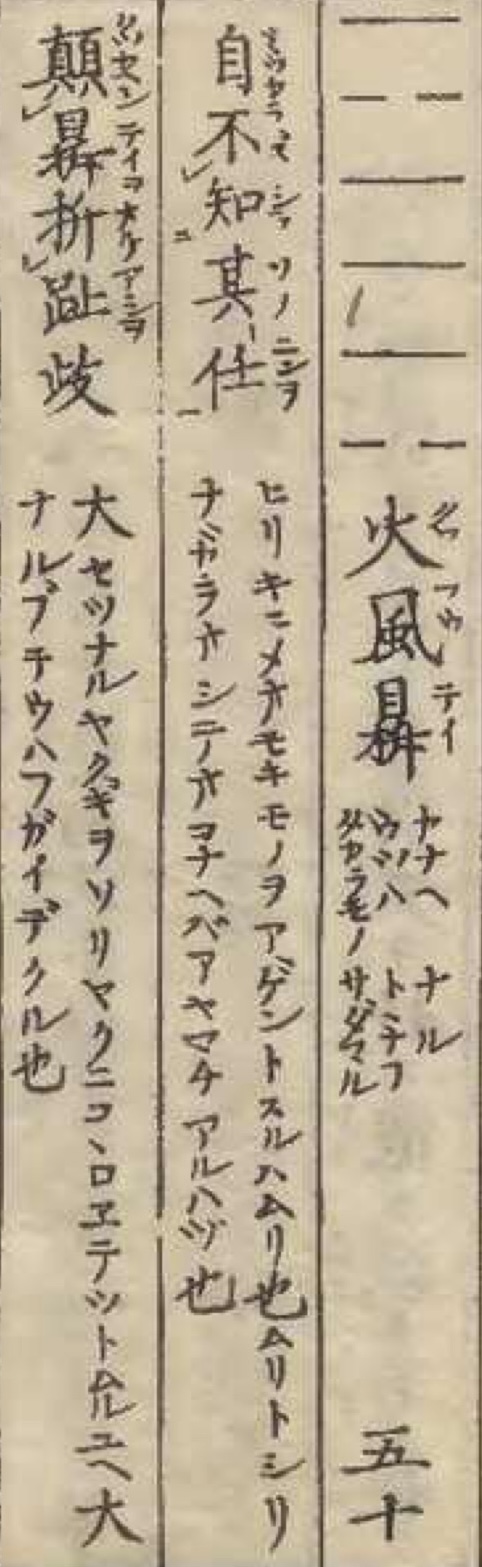 火風鼎 五十
クハ フウ テイ
カナヘ ナル
ウツハ トヽナフ
タカラモノ サダマル
自不知其任
ミヅカラズ シラ ソノ ニンヲ
ヒリキニメオモキモノヲアゲントスルハムリ也ムリトシリ
ナガラオシテオコナヘバアヤマチアルハヅ也
顛鼎折趾歧
テイヲ アシヲ
大セツナルヤクギヲソリヤクニコヽロヱテツトムルユヘ大
ナルブチウハフガイデクル也